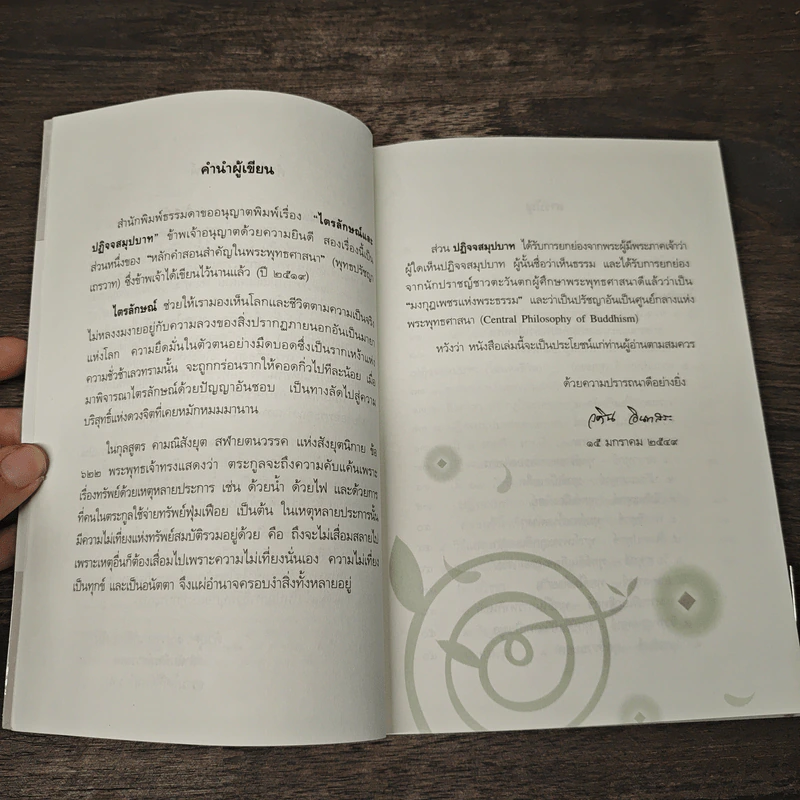 คำนำผู้เขียน
สำนักพิมพ์ธรรมดาขออนุญาตพิมพ์เรื่อง "ไตรลักษณ์และ
ปฏิจจสมุปบาท" ข้าพเจ้าอนุญาตด้วยความยินดี สองเรื่องนี้เป็น
ส่วนหนึ่งของ "หลักคำสอนสำคัญในพระพุทธศาสนา" (พุทธปรัชญา
เถรวาท) ซึ่งข้าพเจ้าได้เขียนไว้นานแล้ว (ปี ๒๕๑๙)
ไตรลักษณ์ ช่วยให้เรามองเห็นโลกและชีวิตตามความเป็นจริง
ไม่หลงงมงายอยู่กับความลวงของสิ่งปรากฏภายนอกอันเป็นมายา
แห่งโลก ความยึดมั่นในตัวตนอย่างมืดบอดซึ่งเป็นรากเหง้าแห่ง
ความชั่วช้าเลวทรามนั้น จะถูกกร่อนรากให้คอดกิ่วไปทีละน้อย เมื่อ
มาพิจารณาไตรลักษณ์ด้วยปัญญาอันชอบ เป็นทางลัดไปสู่ความ
บริสุทธิ์แห่งดวงจิตที่เคยหมักหมมมานาน
ในกุลสูตร คามณิสังยุต สฬายตนวรรค แห่งสังยุตนิกาย ข้อ
๖๒๒ พระพุทธเจ้าทรงแสดงว่า ตระกูลจะถึงความคับแค้นเพราะ
เรื่องทรัพย์ด้วยเหตุหลายประการ เช่น ด้วยน้ำ ด้วยไฟ และด้วยการ
ที่คนในตระกูลใช้จ่ายทรัพย์ฟุ่มเฟือย เป็นต้น ในเหตุหลายประการนั้น
มีความไม่เที่ยงแห่งทรัพย์สมบัติรวมอยู่ด้วย คือ ถึงจะไม่เสื่อมสลายไป
เพราะเหตุอื่นก็ต้องเสื่อมไปเพราะความไม่เที่ยงนั่นเอง ความไม่เที่ยง
เป็นทุกข์ และเป็นอนัตตา จึงแผ่อำนาจครอบงำสิ่งทั้งหลายอยู่
ส่วน ปฏิจจสมุปบาท ได้รับการยกย่องจากพระผู้มีพระภาคเจ้าว่า
ผู้ใดเห็นปฏิจจสมุปบาท ผู้นั้นชื่อว่าเห็นธรรม และได้รับการยกย่อง
จากนักปราชญ์ชาวตะวันตกผู้ศึกษาพระพุทธศาสนาดีแล้วว่าเป็น
"มงกุฎเพชรแห่งพระธรรม" และว่าเป็นปรัชญาอันเป็นศูนย์กลางแห่ง
พระพุทธศาสนา (Central Philosophy of Buddhism)
หวังว่า หนังสือเล่มนี้จะเป็นประโยชน์แก่ท่านผู้อ่านตามสมควร
ด้วยความปรารถนาดีอย่างยิ่ง
วศิน อินทสระ
๑๕ มกราคม ๒๕๔๙